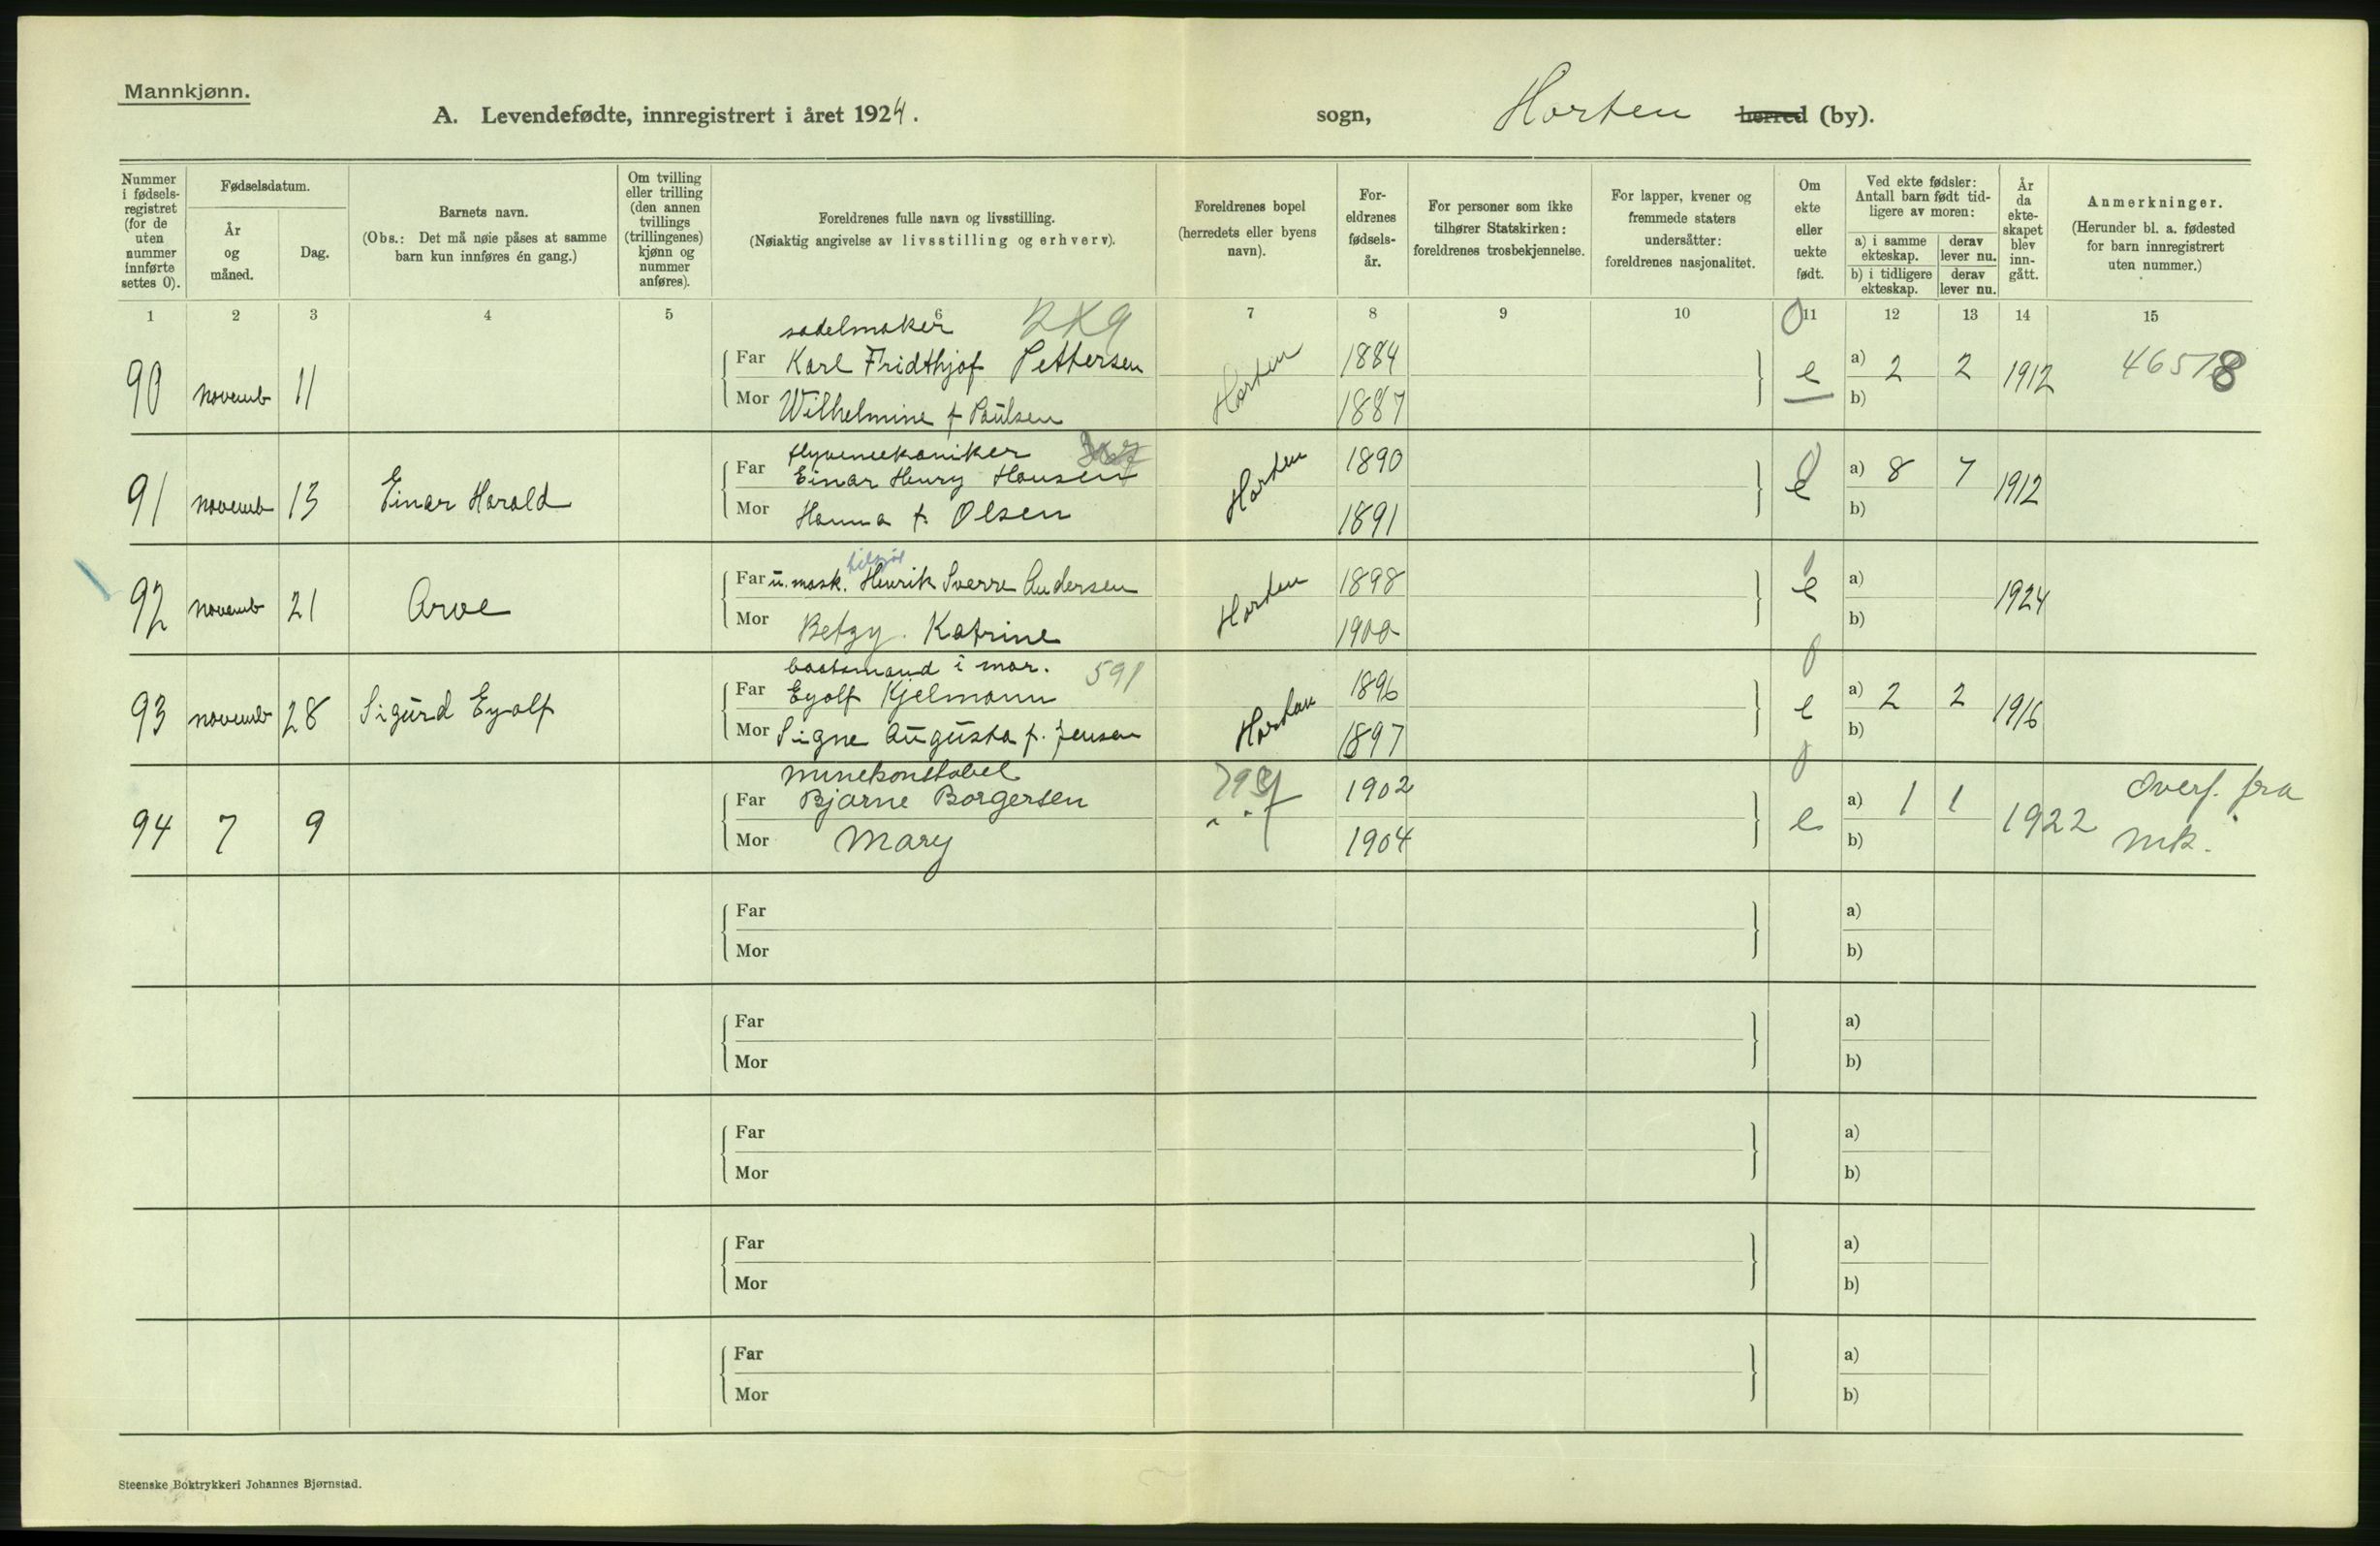 Mannkjønn.
A. Levendefødte, innregistrert i året 1924.
sogn, Horten herred (by).
Nummer i fødsels-registret (for de uten nummer innførte settes 0).
Fødselsdatum.
År og måned.
Dag.
Barnets navn.
(Obs.: Det må nøie påses at samme barn kun innføres én gang.)
Om tvilling eller trilling (den annen tvillings (trillingenes) kjønn og nummer anføres).
Foreldrenes fulle navn og livsstilling.
(Nøiaktig angivelse av livsstilling og erhverv).
Foreldrenes bopel (herredets eller byens navn).
For-eldrenes fødsels-år.
For personer som ikke tilhører Statskirken: foreldrenes trosbekjennelse.
For lapper, kvener og fremmede staters undersåtter: foreldrenes nasjonalitet.
Om ekte eller uekte født.
Ved ekte fødsler: Antall barn født tid-ligere av moren:
a) i samme ekteskap.
derav lever nu.
b) i tidligere ekteskap.
derav lever nu.
År da ekte-skapet blev inn-gått.
Anmerkninger.
(Herunder bl. a. fødested for barn innregistrert uten nummer.)
1 2 3 4 5 6 7 8 9 10 11 12 13 14 15
sadelmaker 2X9
90 novemb 11 Far Karl Fridthjof Pettersen Horten 1884 e a) 2 2 1912 46578
Mor Wilhelmine f Paulsen 1887 b)
flyvemekaniker
91 novemb 13 Einar Harald Far Einar Henry Hansen Horten 1890 e a) 8 7 1912
Mor Hanna f. Olsen 1891 b)
92 novemb 21 Arve Far u. mask. Henrik Sverre Andersen Horten 1898 e a) 1924
Mor Betzy Katrine 1900 b)
baatsmand i mar. 591
93 novemb 28 Sigurd Eyolf Far Eyolf Kjelmann Horten 1896 e a) 2 2 1916
Mor Signe Augusta f. Jensen 1897 b)
Minekonstabel
94 7 9 Far Bjarne Borgersen 1902 e a) 1 1 1922 Overf. fra
Mor Mary 1904 b) mk.
Far a)
Mor b)
Far a)
Mor b)
Far a)
Mor b)
Far a)
Mor b)
Far a)
Mor b)
Steenske Boktrykkeri Johannes Bjørnstad.